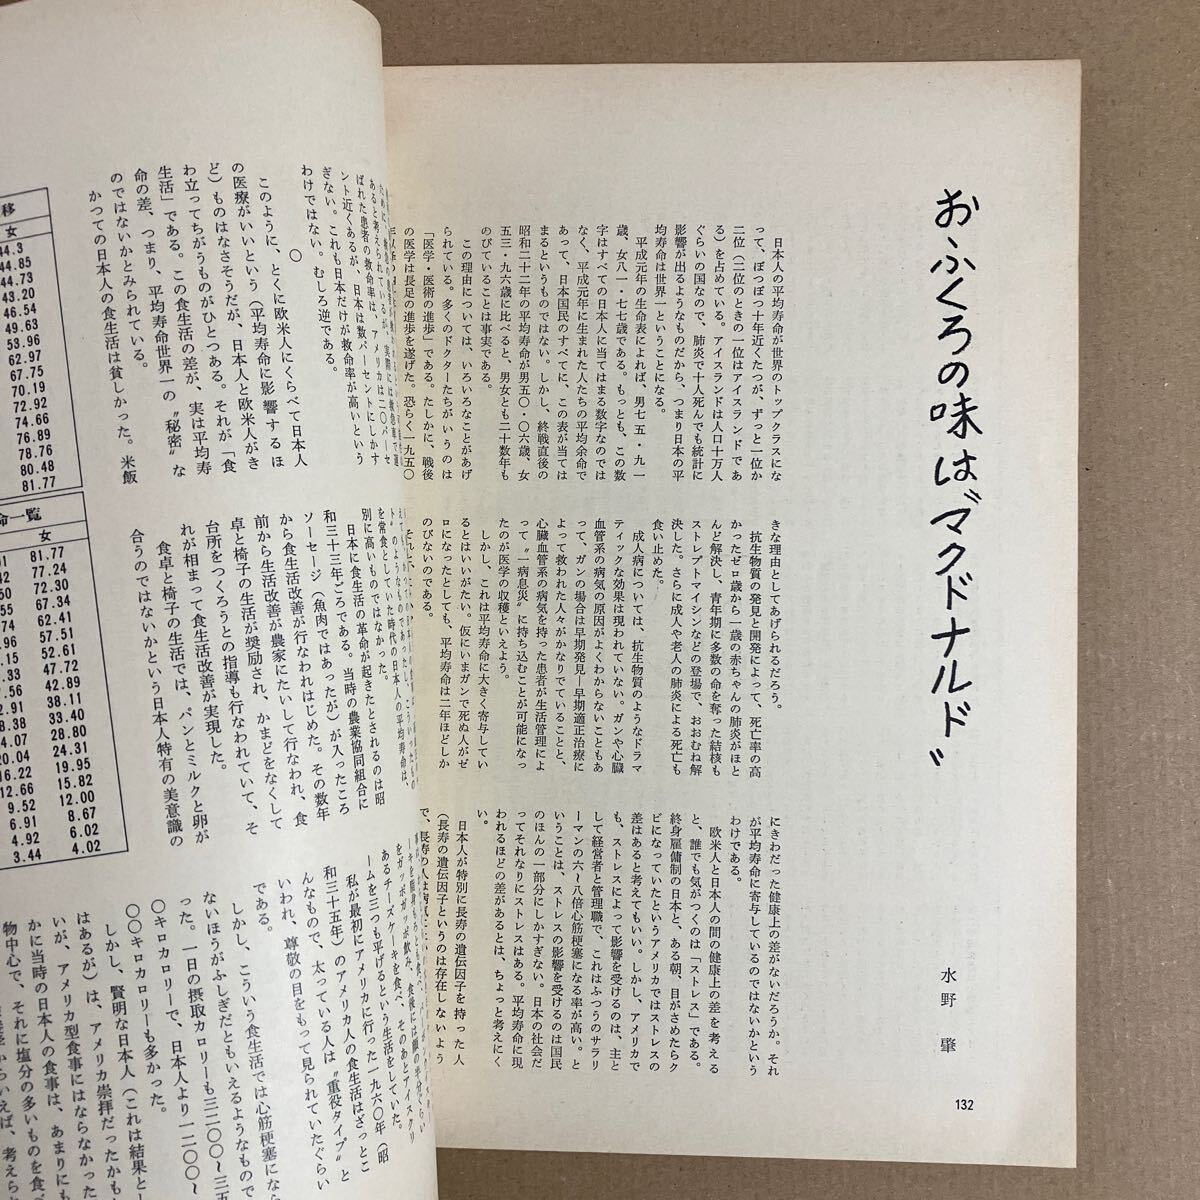 おふくろの味は〝マクドナルド〟
水野 肇
日本人の平均寿命が世界のトップクラスにな
って、ぼつぼつ十年近くたつが、ずっと一位か
二位(二位のときの一位はアイスランドであ
る)を占めている。アイスランドは人口十万人
ぐらいの国なので、肺炎で十人死んでも統計に
影響が出るようなものだから、つまり日本の平
均寿命は世界一ということになる。
平成元年の生命表によれば、男七五・九一
歳、女八一・七七歳である。もっとも、この数
字はすべての日本人に当てはまる数字なのでは
なく、平成元年に生まれた人たちの平均余命で
あって、日本国民のすべてに、この表が当ては
まるというものではない。しかし、終戦直後の
昭和二十二年の平均寿命が男五〇・〇六歳、女
五三・九六歳に比べると、男女とも二十数年も
のびていることは事実である。
この理由については、いろいろなことがあげ
られている。多くのドクターたちがいうのは
「医学・医術の進歩」である。たしかに、戦後
の医学は長足の進歩を遂げた。恐らく一九五〇
きな理由としてあげられるだろう。
抗生物質の発見と開発によって、死亡率の高
かったゼロ歳から一歳の赤ちゃんの肺炎がほと
んど解決し、青年期に多数の命を奪った結核も
ストレプトマイシンなどの登場で、おおむね解
決した。さらに成人や老人の肺炎による死亡も
食い止めた。
成人病については、抗生物質のようなドラマ
ティックな効果は現われていない。ガンや心臓
血管系の病気の原因がよくわからないこともあ
って、ガンの場合は早期発見—早期適正治療に
よって救われた人々がかなりでていることと、
心臓血管系の病気を持った患者が生活管理によ
って〝一病息災〟に持ち込むことが可能になっ
たのが医学の収穫といえよう。
しかし、これは平均寿命に大きく寄与してい
るとはいいがたい。仮にいまガンで死ぬ人がゼ
ロになったとしても、平均寿命は二年ほどしか
のびないのである。
にきわだった健康上の差がないだろうか。それ
が平均寿命に寄与しているのではないかという
わけである。
欧米人と日本人の間の健康上の差を考える
と、誰でも気がつくのは「ストレス」である。
終身雇傭制の日本と、ある朝、目がさめたらク
ビになっていたというアメリカではストレスの
差はあると考えてもいい。しかし、アメリカで
も、ストレスによって影響を受けるのは、主と
して経営者と管理職で、これはふつうのサラリ
ーマンの六〜八倍心筋梗塞になる率が高い。と
いうことは、ストレスの影響を受けるのは国民
のほんの一部分にしかすぎない。日本の社会だ
ってそれなりにストレスはある。平均寿命に現
われるほどの差があるとは、ちょっと考えにく
い。
日本人が特別に長寿の遺伝因子を持った人
(長寿の遺伝因子というのは存在しないよう
132
あると考えられているが、実際には救急車で運
ばれた患者の救命率は、アメリカは二〇パーセ
ント近くあるが、日本は数パーセントにしかす
ぎない。これも日本だけが救命率が高いという
わけではない。むしろ逆である。
○
このように、とくに欧米人にくらべて日本人
の医療がいいという(平均寿命に影響するほ
ど)ものはなさそうだが、日本人と欧米人がき
わ立ってちがうものがひとつある。それが「食
生活」である。この食生活の差が、実は平均寿
命の差、つまり、平均寿命世界一の〝秘密〟な
のではないかとみられている。
かつての日本人の食生活は貧しかった。米飯
を常食としていた時代の日本人の平均寿命は、
別に高いものではなかった。
日本に食生活の革命が起きたとされるのは昭
和三十三年ごろである。当時の農業協同組合に
ソーセージ(魚肉ではあったが)が入ったころ
から食生活改善が行なわれはじめた。その数年
前から生活改善が農家にたいして行なわれ、食
卓と椅子の生活が奨励され、かまどをなくして
台所をつくろうとの指導も行なわれていて、そ
れが相まって食生活改善が実現した。
食卓と椅子の生活では、パンとミルクと卵が
合うのではないかという日本人特有の美意識の
をガッポガッポ飲み、食後には顔の半分ぐらい
あるチーズケーキを食べ、そのあとアイスクリ
ームを三つも平げるという生活をしていた。
私が最初にアメリカに行った一九六〇年(昭
和三十五年)のアメリカ人の食生活はざっとこ
んなもので、太っている人は〝重役タイプ〟と
いわれ、尊敬の目をもって見られていたぐらい
である。
しかし、こういう食生活では心筋梗塞になら
ないほうがふしぎだともいえるようなもので
った。一日の摂取カロリーも三二〇〇〜三五
〇キロカロリーで、日本人より一二〇〇〜
〇〇キロカロリーも多かった。
しかし、賢明な日本人(これは結果と
はあるが)は、アメリカ崇拝だったかも
いが、アメリカ型食事にはならなかった
かに当時の日本人の食事は、あまりにも
物中心で、それに塩分の多いものを食べ
移
女
44.3
44.85
44.73
43.20
46.54
49.63
53.96
62.97
67.75
70.19
72.92
74.66
76.89
78.76
80.48
81.77
命一覧
女
81.77
77.24
72.30
67.34
62.41
57.51
52.61
47.72
42.89
38.11
33.40
28.80
24.31
20.04 19.95
16.22 15.82
12.66 12.00
9.52 8.67
6.91 6.02
4.92 4.02
3.44